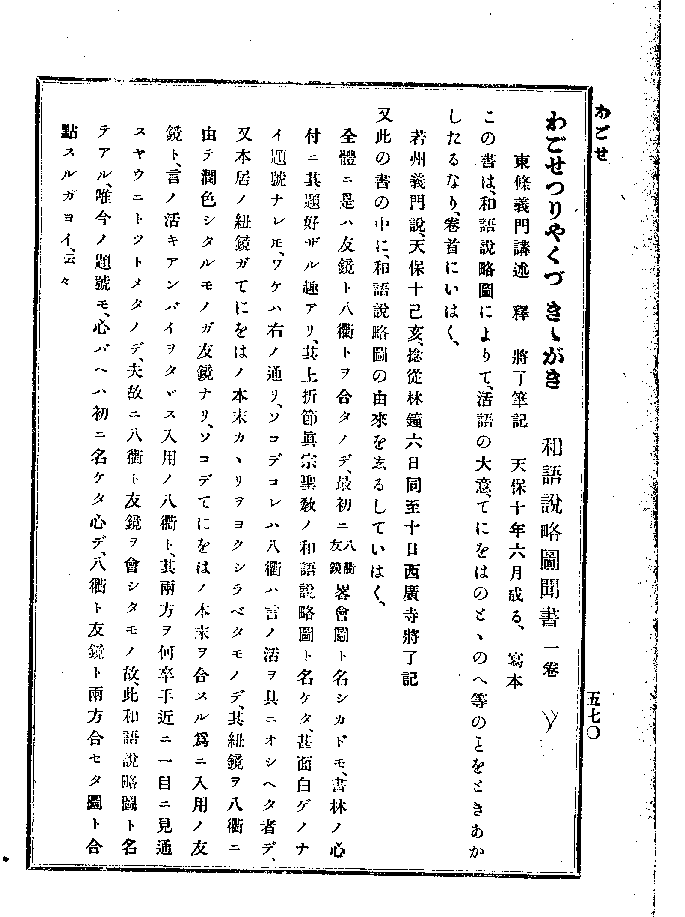 わごせ
五七〇
わごせつりやくづきゝがき 和語說略圖聞書 一卷
東條義門講述 釋 將了筆記 天保十年六月成る、寫本
この書は、和語說略圖によりて、活語の大意、てにをはのとゝのへ等のことをときあか
したるなり、卷首にいはく、
若州義門說、天保十己亥、從林鐘六日同至十日西廣寺將了記
又此の書の中に、和語說略圖の由來をゑるしていはく、
全體ニ是ハ友鏡ト八衢トヲ合タノデ、最初ニ八衢友鏡畧會圖ト名シカドモ、書林ノ心
付ニ其題好ザル趣アリ、其上折節眞宗聖敎ノ和語說略圖ト名ケタ、甚面白ゲノナ
イ題號ナレモ、ワケハ右ノ通リ、ソコデコレハ八衢ハ言ノ活ヲ具ニオシヘタ者デ、
又本居ノ紐鏡ガてにをはノ本末カヽリヲヨクシラベタモノデ、其紐鏡ヲ八衢ニ
由テ潤色シタルモノガ友鏡ナリ、ソコデてにをはノ本末ヲ合スル爲ニ入用ノ友
鏡ト、言ノ活キアンバイヲタヾス入用ノ八衢ト、其兩方ヲ何卒手近ニ一目ニ見通
スヤウニトツトメタノデ、夫故ニ八衢ト友鏡ヲ會シタモノ故、此和語說略圖ト名
テアル、唯今ノ題號モ、心バヘハ初ニ名ケタ心デ、八衢ト友鏡ト兩方合セタ圖ト合
點スルガヨイ、云々